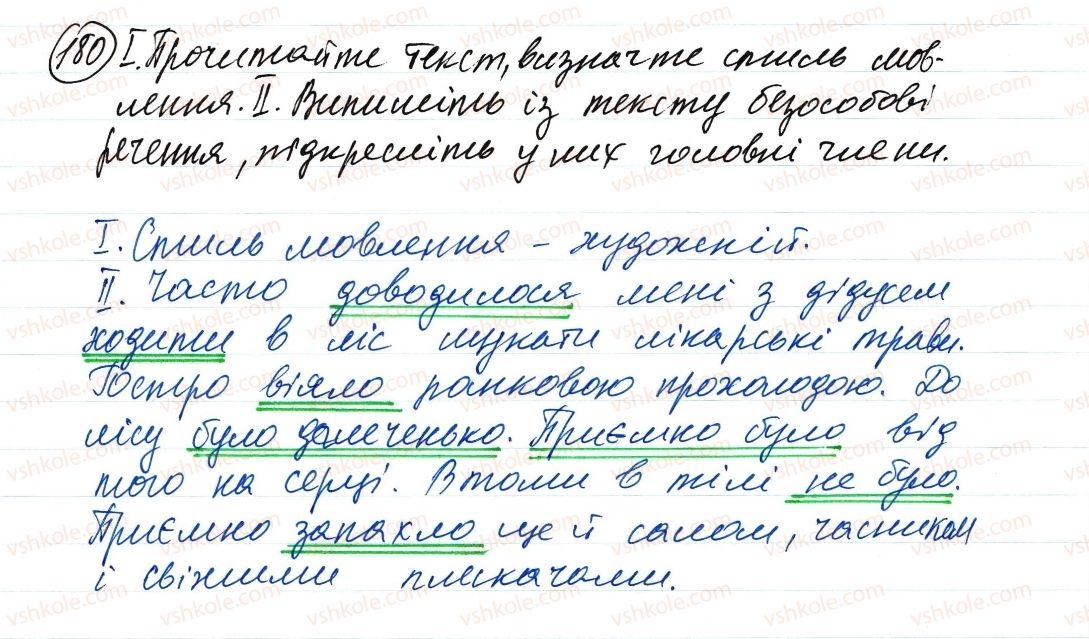 180 І. Прочитайте текст, визначте стиль мов-
лення. ІІ. Випишіть із тексту безособові
речення, підкресліть у них головні члени.
І. Стиль мовлення – художній.
ІІ. Часто доводилося мені з дідусем
ходити в ліс шукати лікарські трави.
Гостро віяло ранковою прохолодою. До
лісу було далеченько. Приємно було від
того на серці. Втоми в тілі не було.
Приємно запахло ще й салом, часником
і свіжими плескачами.